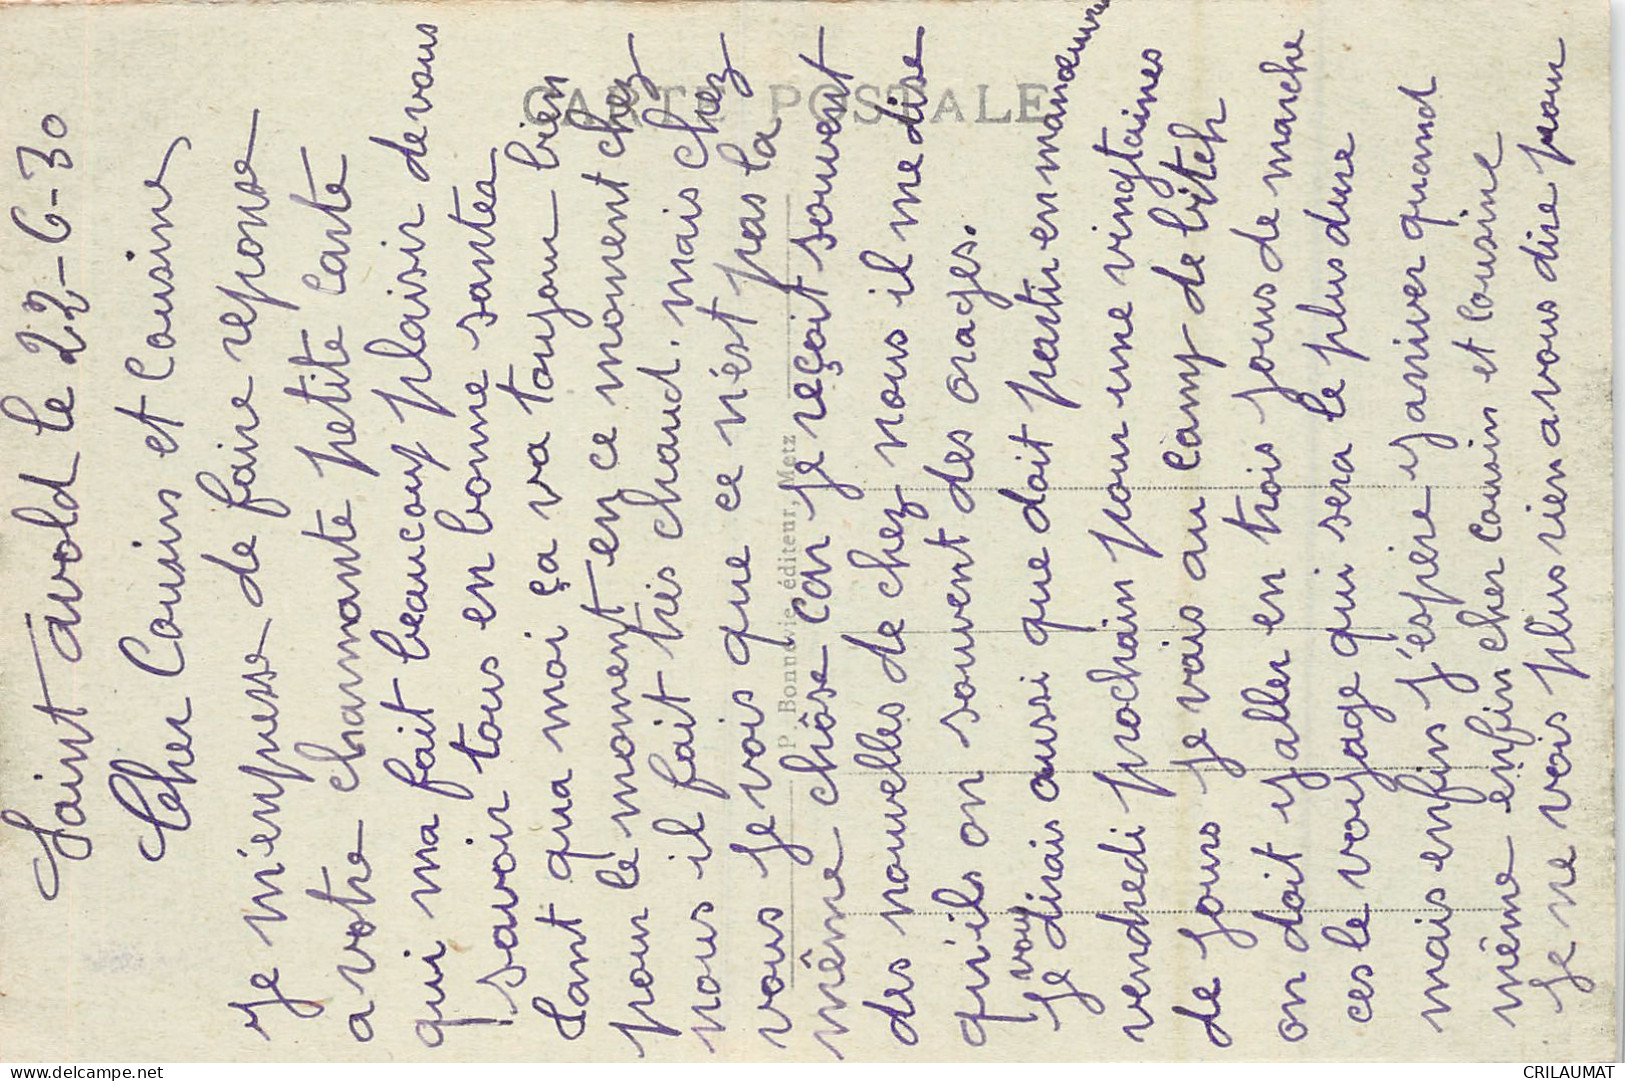 Saint avold le 22-6-30
Cher Cousins et Cousines
Je m'empresse de faire reponse
a votre charmante petite carte
qui ma fait beaucoup plaisir de vous
savoir tous en bonne santée
tant qua moi ça va toujour bien
pour le moment en ce moment chez
nous il fait très chaud. mais chez
vous je vois que ce n'est pas la
même chôse car je reçoit souvent
des nouvelles de chez nous il me dise
qu'ils on souvent des orages.
Je vous dirais aussi que doit partir en manœuvre
vendredi prochain pour une vingtaines
de jours je vais au camp de bitch
on doit y aller en trois jours de marche
ces le voyage qui sera le plus dure
mais enfins j'espère y arriver quand
même enfin cher cousin et cousine
je ne vois plus rien a vous dire pour
CARTE POSTALE
P. Bonnevie, éditeur, Metz
delcampe.net
CRILAUMAT